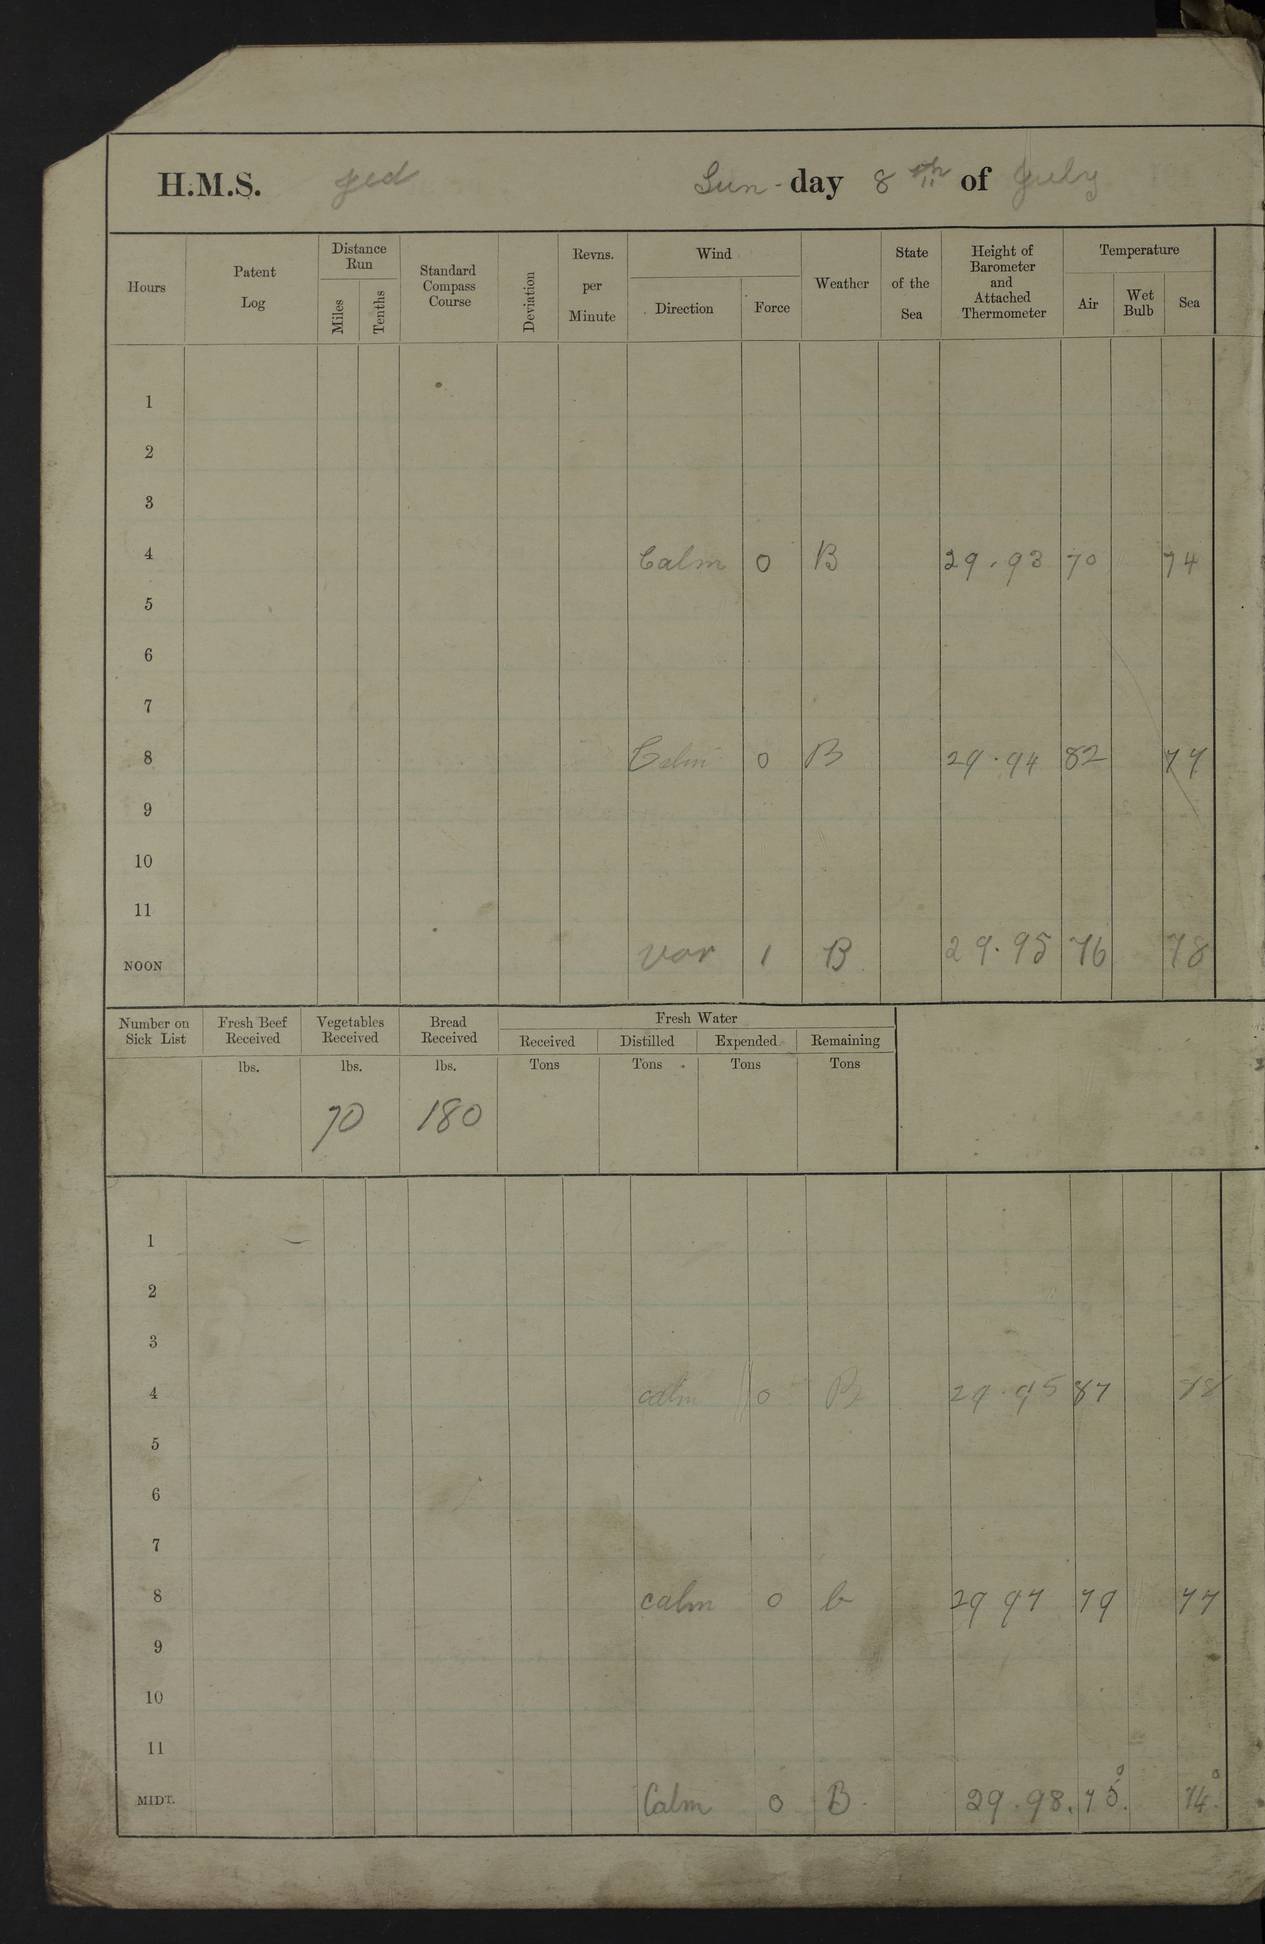 H.M.S. Jed Sun-day 8th of July
Hours Patent Log Distance Run Miles Tenths Standard Compass Course Deviation Revns. per Minute Wind Direction Force Weather State of the Sea Height of Barometer and Attached Thermometer Temperature Air Wet Bulb Sea
1
2
3
4 Calm 0 B 29.93 70 74
5
6
7
8 Calm 0 B 29.94 82 77
9
10
11
NOON Var 1 B 29.95 76 78
Number on Sick List Fresh Beef Received Vegetables Received Bread Received Fresh Water
Received Distilled Expended Remaining
lbs. lbs. lbs. Tons Tons Tons Tons
70 180
1
2
3
4 calm 0 B 29.95 87 78
5
6
7
8 calm 0 b 29 97 79 77
9
10
11
MIDT. Calm 0 B. 29.98. 75°. 74°.